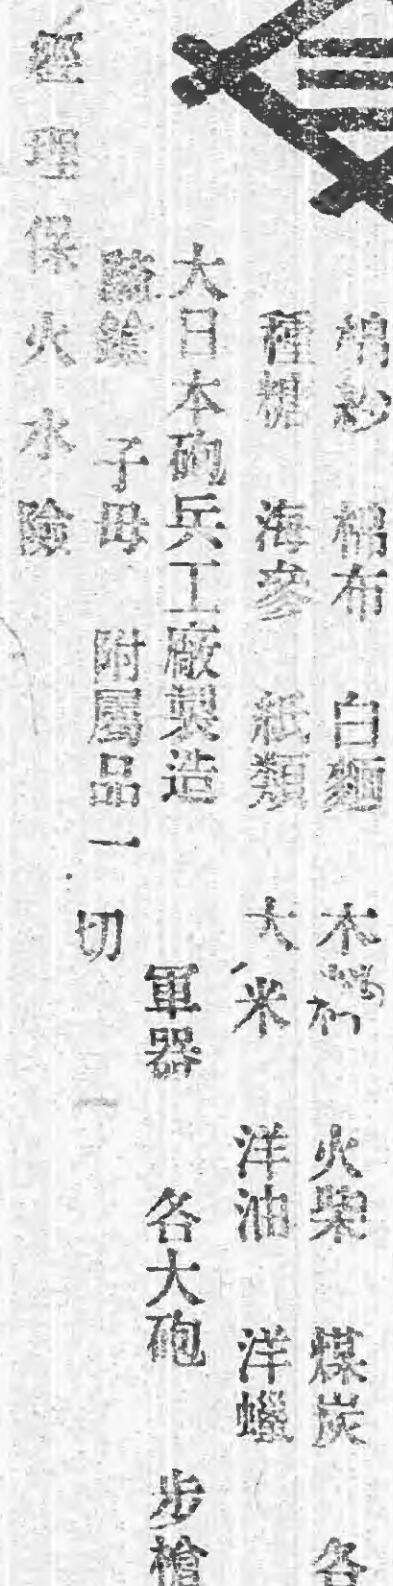 棉紗 棉布 白麵 木 火柴 煤炭 各
種糖 海參 紙類 大米 洋油 洋蠟
大日本砲兵工廠製造 軍器 各大砲 步槍
子母 附屬品一切
經理保火水險